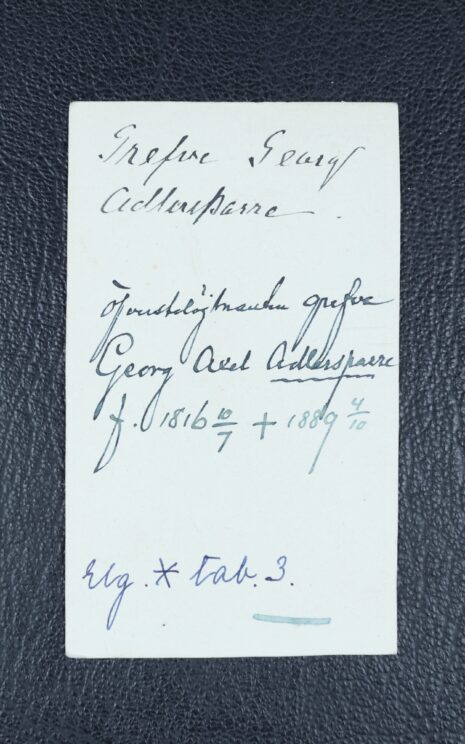 Grefve Georg
Adlersparre.
Öfverstelöjtnanten grefve
Georg Axel Adlersparre
f. 1816 10/7 + 1889 4/10
Elg. * tab. 3.